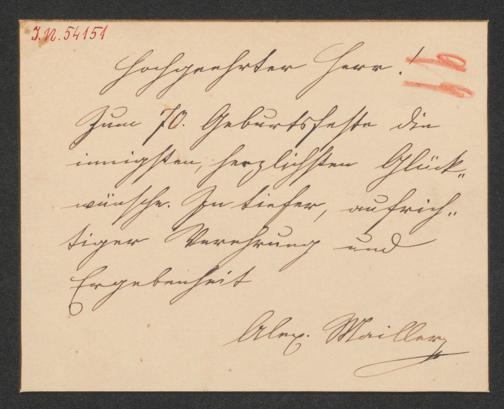 I.N. 54151
Hochgeehrter Herr!
Zum 70. Geburtsfeste die
innigsten, herzlichsten Glück„
wünsche. In tiefer, aufrich„
tiger Verehrung und
Ergebenheit
Alex. Mailler